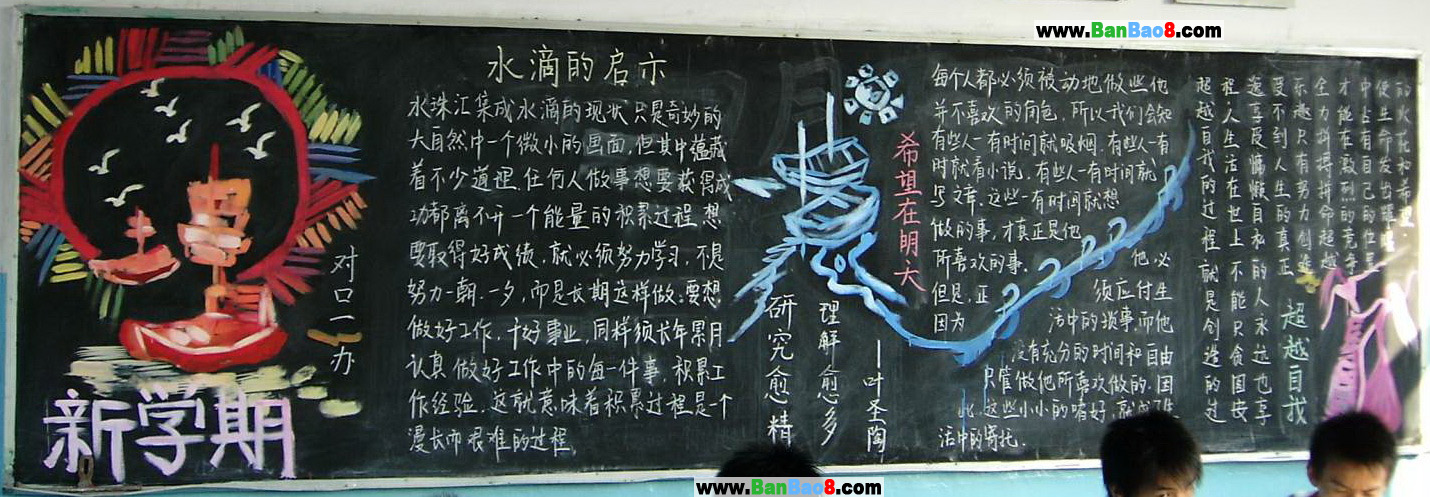 www.BanBao8.com
新学期
对口一办
水滴的启示
水珠汇集成水滴的现状只是奇妙的
大自然中一个微小的画面,但其中蕴藏
着不少道理.任何人做事想要获得成
功都离不开一个能量的积累过程,想
要取得好成绩,就必须努力学习,不是
努力一朝.一夕,而是长期这样做.要想
做好工作,干好事业,同样须长年累月
认真做好工作中的每一件事,积累工
作经验,这就意味着积累过程是一个
漫长而艰难的过程.
研究愈精
理解愈多
—叶圣陶
希望在明天
每个人都必须被动地做些他
并不喜欢的角色,所以我们会知
有些人一有时间就吸烟,有些人一有
时就看小说,有些人一有时间就
写文章,这些一有时间就想
做的事,才真正是他
所喜欢的事.
但是,正 他必
因为 须应付生
活中的琐事,而他
没有充分的时间和自由
只管做他所喜欢做的,因
此,这些小小的嗜好,就成
活中的寄托.
超越自我
的火花和希望
使生命发出
中占有自己的位
才能在激烈的竞争
全力拼搏拼命超越
乐趣只有努力创造
受不到人生的真正
逸享及慵懒自私的人永远也享
程人生活在世上不能只贪图安
超越自我的过程就是创造的过
www.BanBao8.com